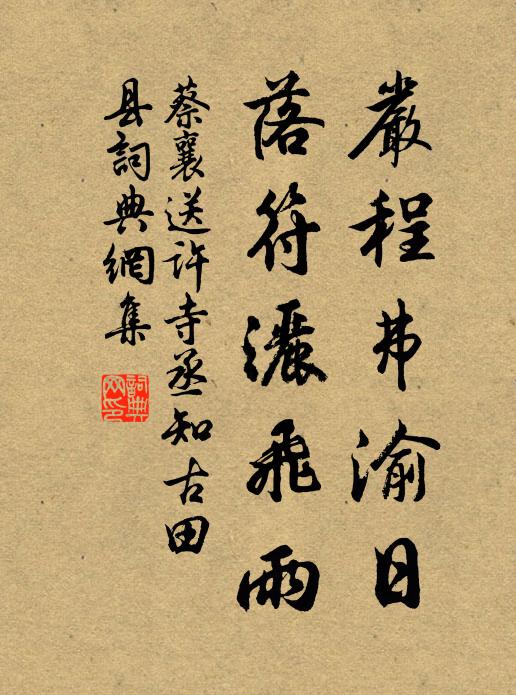 嚴程弗渝日
落符灑飛雨
蔡襄送許寺丞知古田
县詞典網集
詞典網印